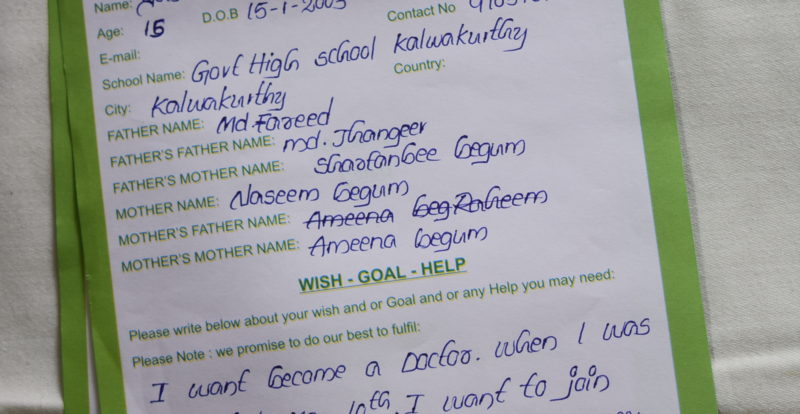 Name:
Age: 15 D.O.B 15-1-2003 Contact No
E-mail:
School Name: Govt High school Kalwakurthy
City: Kalwakurthy Country:
FATHER NAME: Md. Fareed
FATHER'S FATHER NAME: md. Jhangeer
FATHER'S MOTHER NAME: sharfanbee begum
MOTHER NAME: Naseem begum
MOTHER'S FATHER NAME: Ameena beg Raheem
MOTHER'S MOTHER NAME: Ameena begum
WISH - GOAL - HELP
Please write below about your wish and or Goal and or any Help you may need:
Please Note : we promise to do our best to fulfil:
I want become a Doctor. when I was
10th I want to join